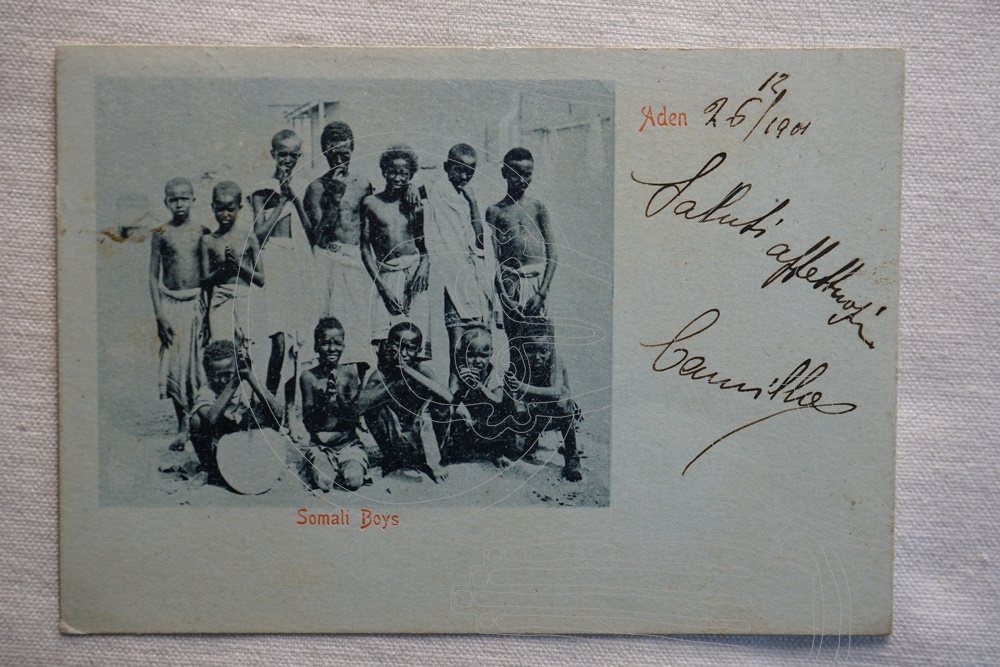 Aden 26/12 1901
Saluti
affettuosi
Camilla
Somali Boys